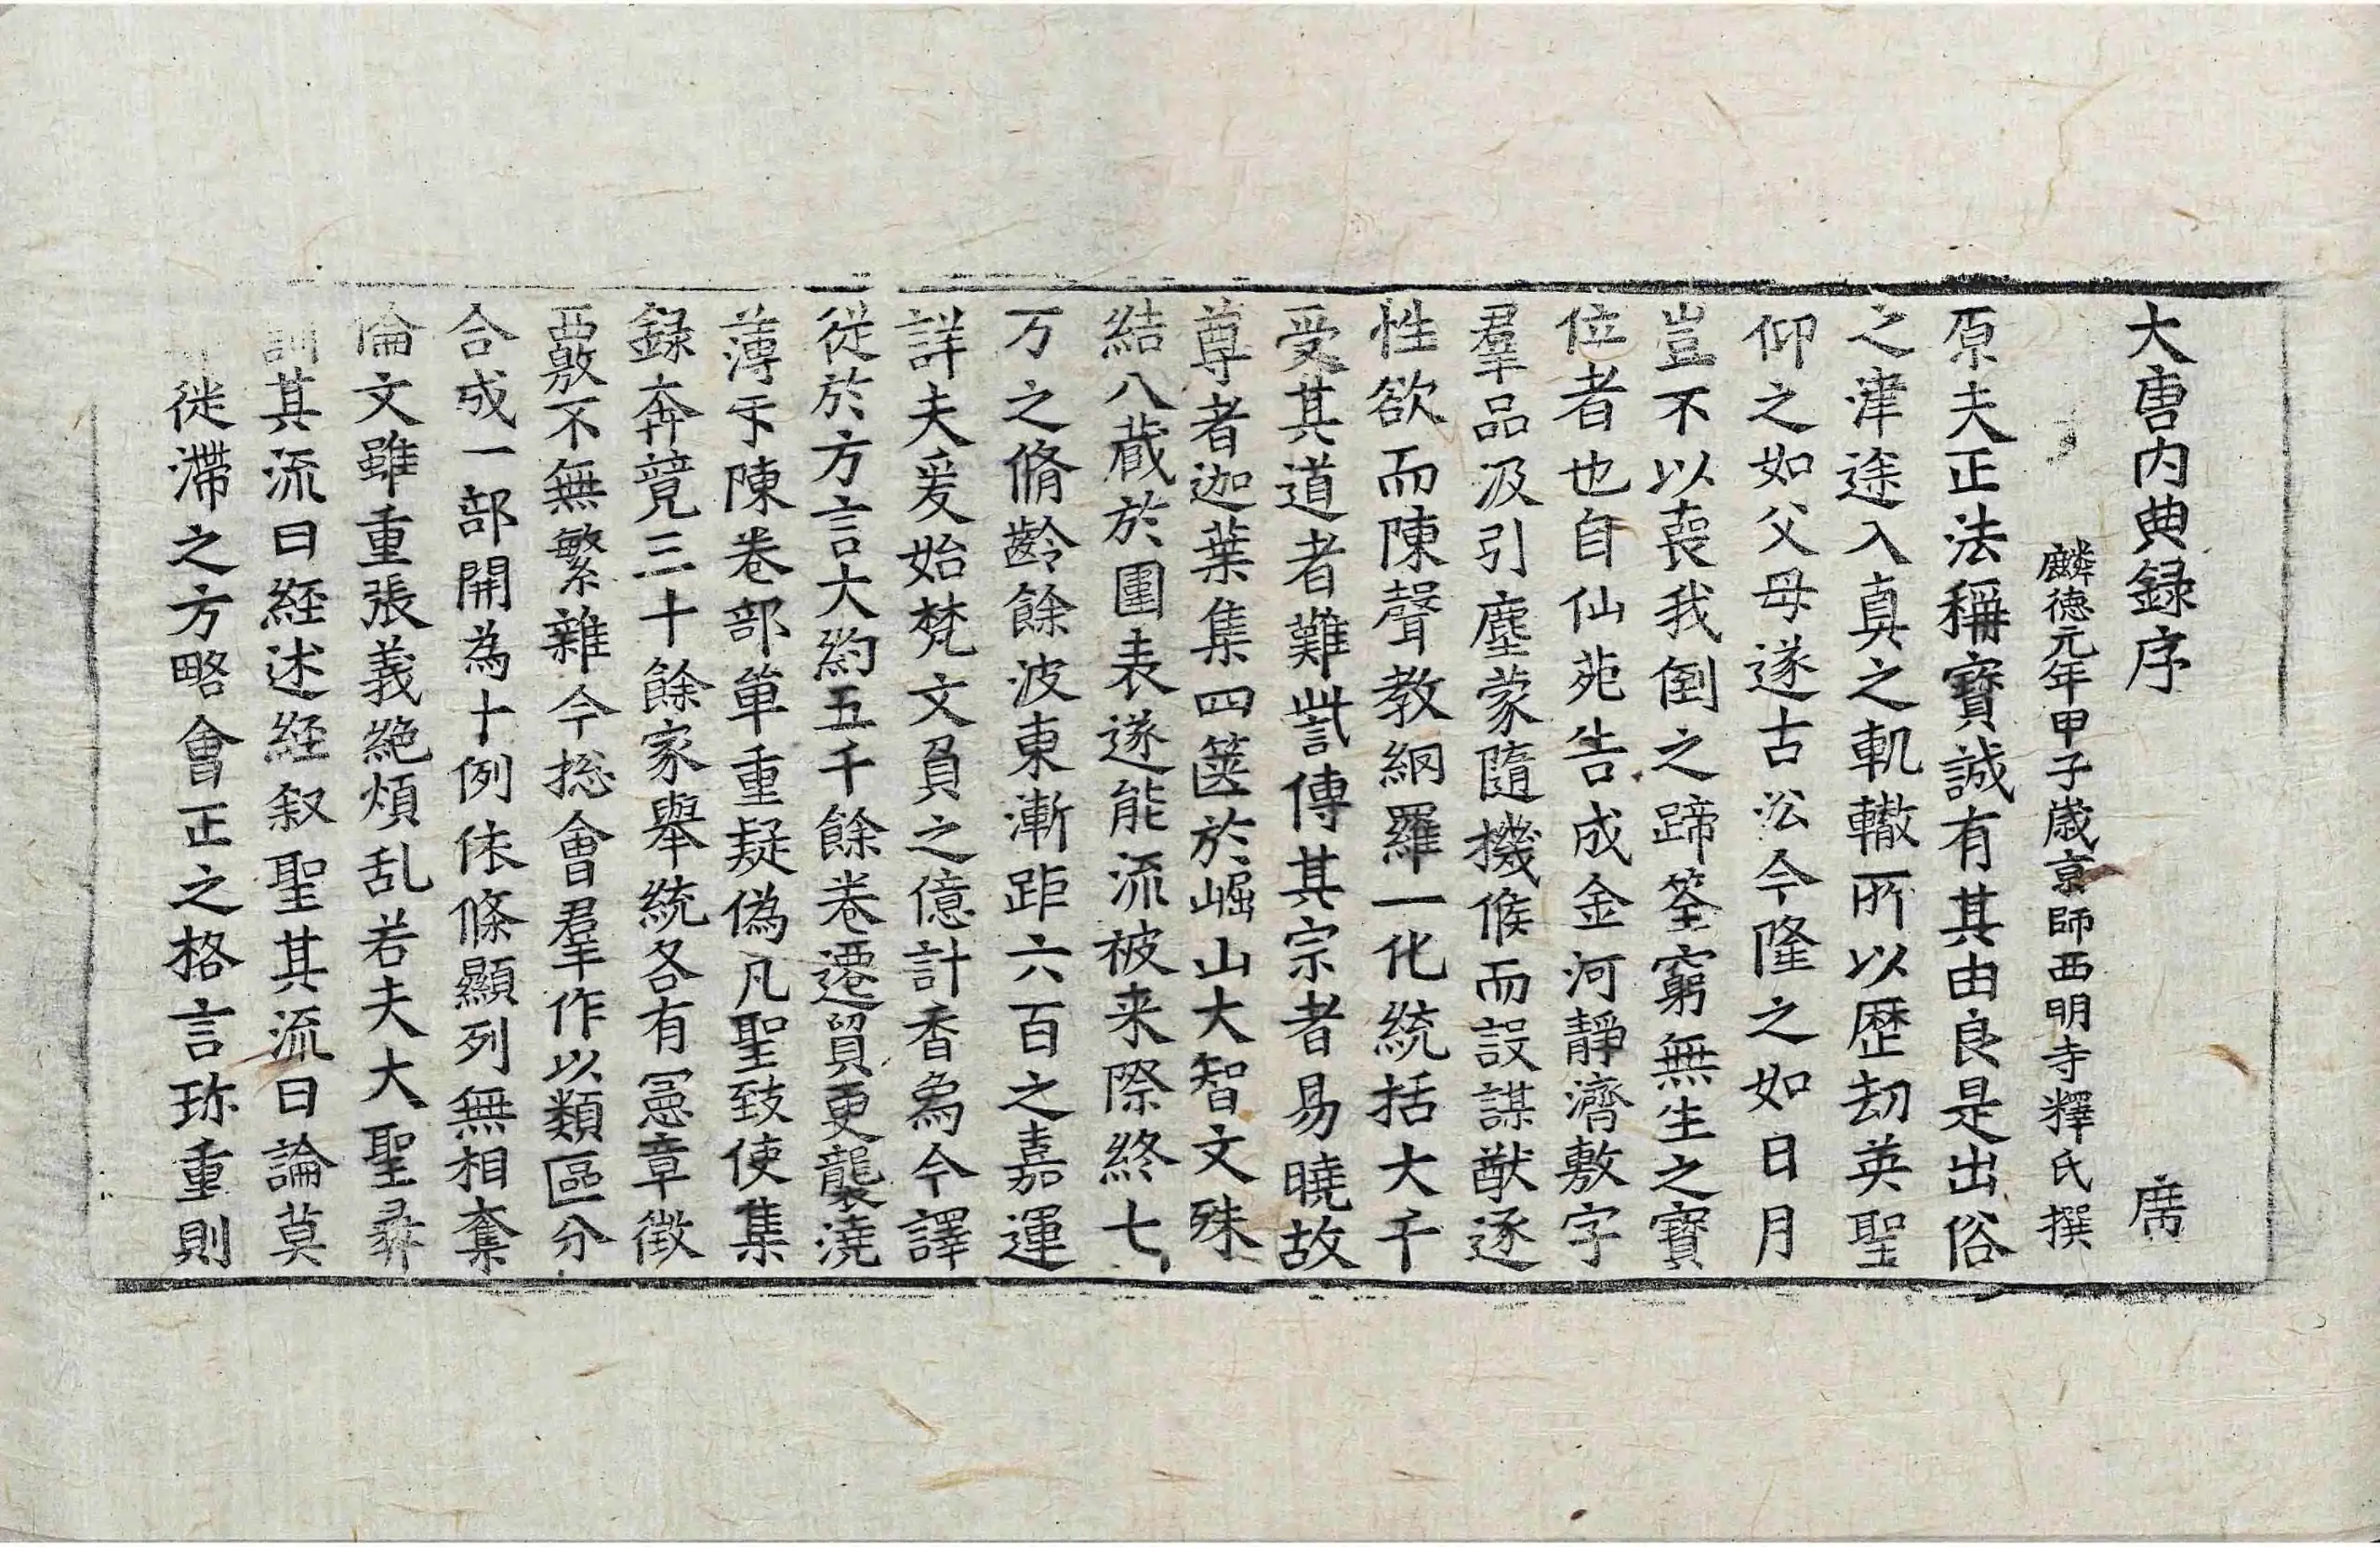 大唐内典録序 席
麟德元年甲子歲京師西明寺釋氏撰
原夫正法稱寶誠有其由良是出俗
之津途入真之軌轍所以歷劫英聖
仰之如父母遂古㳂今隆之如日月
豈不以丧我倒之蹄筌窮無生之寶
位者也自仙苑告成金河靜濟敷字
羣品汲引塵蒙隨機候而設謀猷逐
性欲而陳聲教綱羅一化統括大千
受其道者難訾傳其宗者易曉故
尊者迦葉集四篋於崛山大智文殊
結八蔵於圍表遂能流被来際終七
万之脩齡餘波東漸距六百之嘉運
詳夫爰始梵文負之億計香為今譯
従於方言大約五千餘卷遷貿更襲澆
薄乎陳卷部單重疑偽凡聖致使集
録奔競三十餘家舉統各有憲章徴
覈不無繁雜今揔會羣作以類區分
合成一部開為十例依條顯列無相奪
倫文雖重張義絶煩乱若夫大聖彛
訓其流曰経述経叙聖其流曰論莫
徙滯之方略會正之格言珎重則